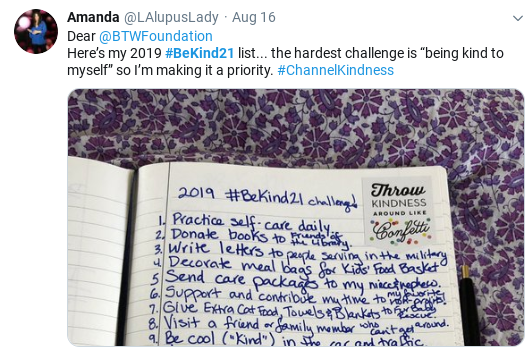 Amanda @LAlupusLady · Aug 16
Dear @BTWFoundation
Here's my 2019 #BeKind21 list... the hardest challenge is “being kind to
myself” so I'm making it a priority. #ChannelKindness
2019 #BeKind21 challenge
Throw
KINDNESS
AROUND LIKE
Confetti
1. Practice self-care daily.
2. Donate books to Friends of the Library.
3. Write letters to people serving in the military
4. Decorate meal bags for Kids Food Basket
5. Send care packages to my niece & nephew.
6. Support and contribute my time to my favorite non-profits!
7. Give Extra Cat Food, Towels & Blankets to For Rescue.
8. Visit a friend or family member who can't get around.
9. Be cool ("Kind") in the car and traffic.